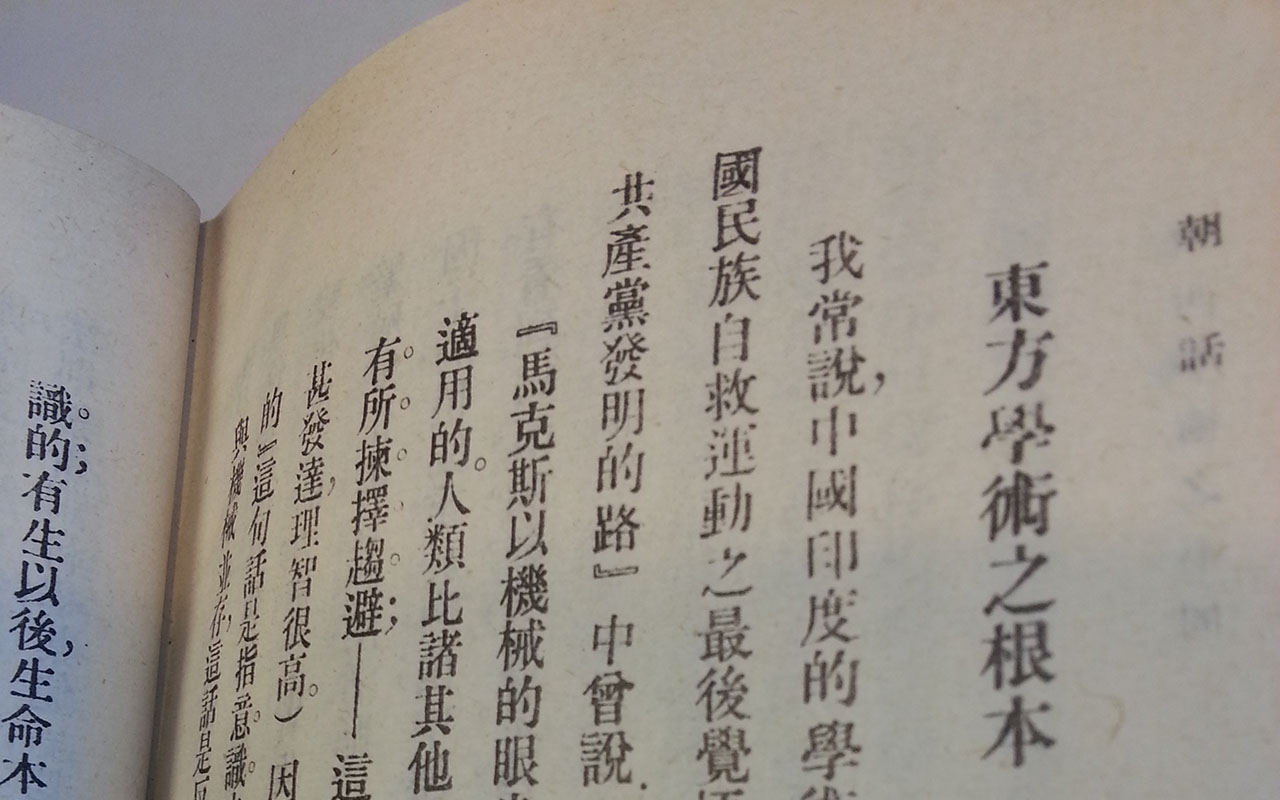 朝話
東方學術之根本
我常說，中國印度的學術
國民族自救運動之最後覺悟
共產黨發明的路』中曾說
『馬克斯以機械的眼
適用的。人類比諸其他
有所揀擇趨避；——這
甚發達，理智很高。）因
的』這句話是指意識
與機械並存，這話是
識的；有生以後，生命本